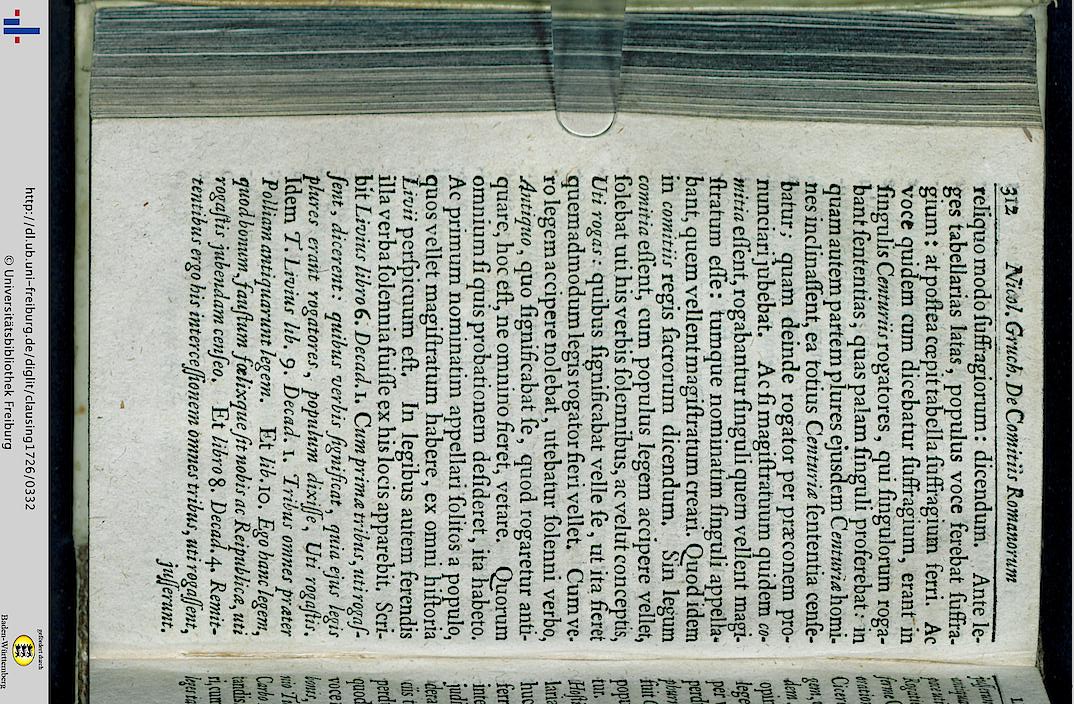 312 Nicol. Gruch. De Comitiis Romanorum
reliquo modo suffragiorum: dicendum. Ante le-
ges tabellarias latas, populus voce ferebat suffra-
gium: at postea cœpit tabella suffragium ferri. Ac
voce quidem cum dicebatur suffragium, erant in
singulis Centuriis rogatores, qui singulorum roga-
bant sententias, quas palam singuli proferebat: in
quam autem partem plures ejusdem Centuriæ homi-
nes inclinassent, ea totius Centuriæ sententia cense-
batur; quam deinde rogator per præconem pro-
nunciari jubebat. Ac si magistratuum quidem co-
mitia essent, rogabantur singuli quem vellent magi-
stratum esse: tumque nominatim singuli appella-
bant, quem vellent magistratum creari. Quod idem
in comitiis regis sacrorum dicendum. Sin legum
comitia essent, cum populus legem accipere vellet,
solebat uti his verbis solennibus, ac velut conceptis,
Uti rogas: quibus significabat velle se, ut ita fieret
quemadmodum legis rogator fieri vellet. Cum ve-
ro legem accipere nolebat, utebatur solenni verbo,
Antiquo, quo significabat se, quod rogaretur anti-
quare, hoc est, ne omnino fieret, vetare. Quorum
omnium si quis probationem desideret, ita habeto.
Ac primum nominatim appellari solitos a populo,
quos vellet magistratum habere, ex omni historia
Livii perspicuum est. In legibus autem ferendis
illa verba solennia fuisse ex his locis apparebit. Scri-
bit Livius libro 6. Decad. 1. Cum primæ tribus, uti rogas-
sent, dicerent: quibus verbis significat, quia ejus legis
plures erant rogatores, populum dixisse, Uti rogastis.
Idem T. Livius lib. 9. Decad. 1. Tribus omnes præter
Polliam antiquarunt legem. Et lib. 10. Ego hanc legem,
quod bonum, faustum fœlixque sit nobis ac Reipublicæ, uti
rogastis jubendam censeo. Et libro 8. Decad. 4. Remit-
tentibus ergo his intercessionem omnes tribus, uti rogassent,
jusserunt.
http://dl.ub.uni-freiburg.de/diglit/clausing1726/0332
© Universitätsbibliothek Freiburg
gefördert durch
Baden-Württemberg